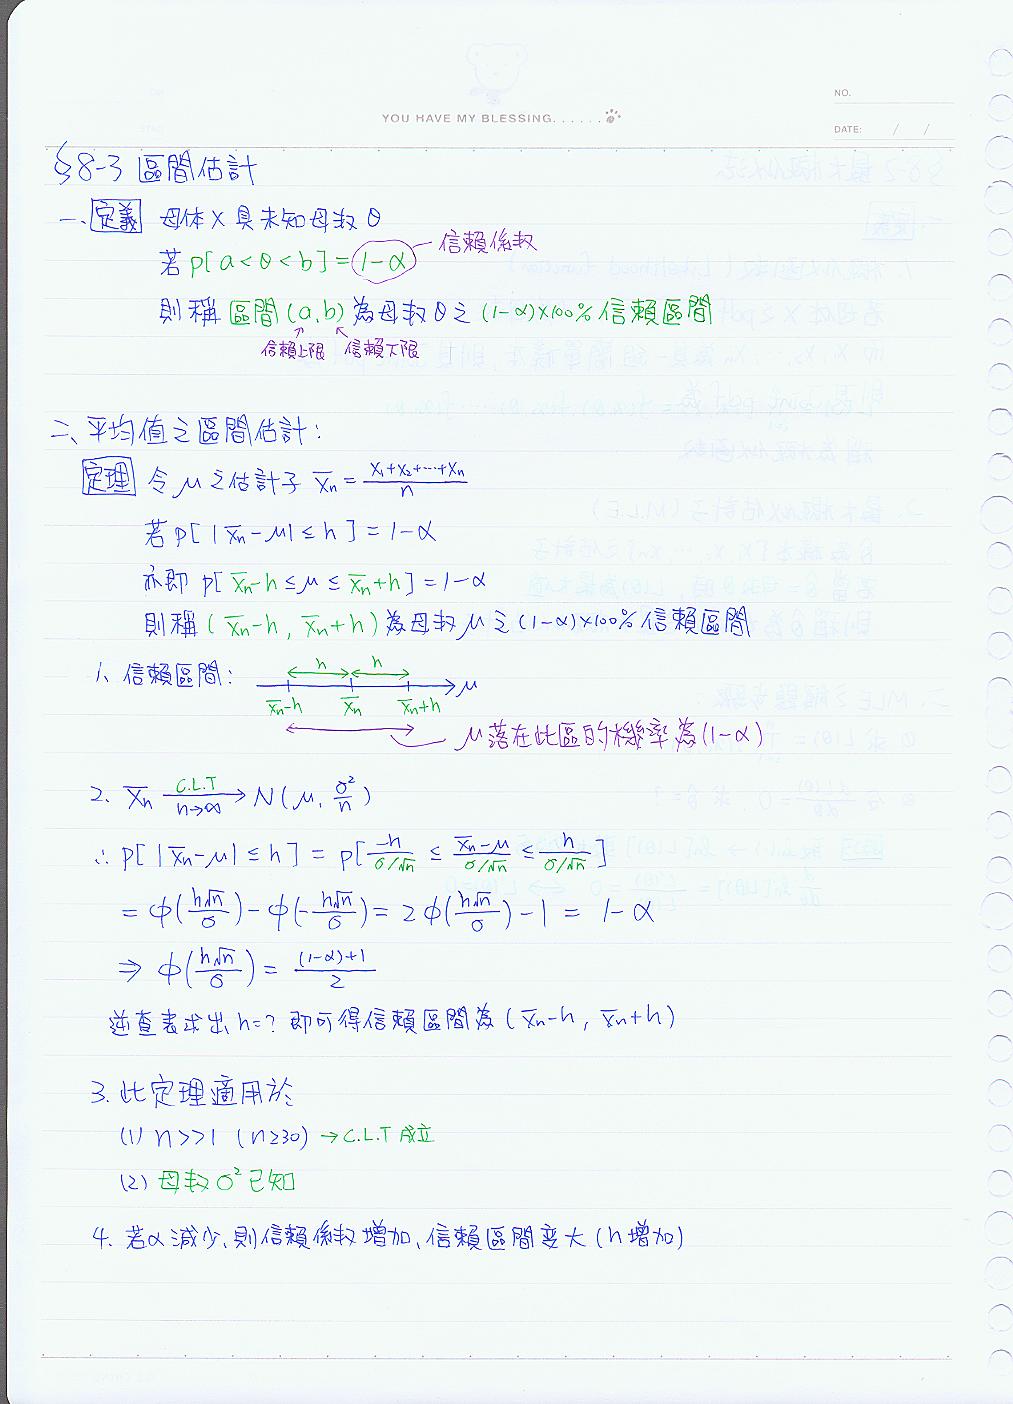 YOU HAVE MY BLESSING......
NO.
DATE: / /
§8-3 區間估計
一、定義 母体X具未知母数θ
若 P[a<θ<b]=1-α 信賴係数
則稱 區間(a,b)為母数θ之(1-α)×100%信賴區間
信賴上限 信賴下限
二、平均值之區間估計:
定理 令μ之估計子 X̄n = (X₁+X₂+⋯+Xn)/n
若P[|X̄n-μ|≤h]=1-α
亦即 P[X̄n-h≤μ≤X̄n+h]=1-α
則稱(X̄n-h, X̄n+h)為母数μ之(1-α)×100%信賴區間
1、信賴區間: h h μ
X̄n-h X̄n X̄n+h
μ落在此區的機率為(1-α)
2. X̄n C.L.T n→∞ → N(μ, σ²/n)
∴ P[|X̄n-μ|≤h] = P[-h/(σ/√n) ≤ (X̄n-μ)/(σ/√n) ≤ h/(σ/√n)]
= φ(h√n/σ)-φ(-h√n/σ)=2φ(h√n/σ)-1 = 1-α
⇒ φ(h√n/σ) = ((1-α)+1)/2
逆查表求出h=? 即可得信賴區間為(X̄n-h, X̄n+h)
3. 此定理適用於
(1) n>>1 (n≥30) →C.L.T 成立
(2) 母数σ²已知
4. 若α減少、則信賴係数增加、信賴區間変大(h增加)